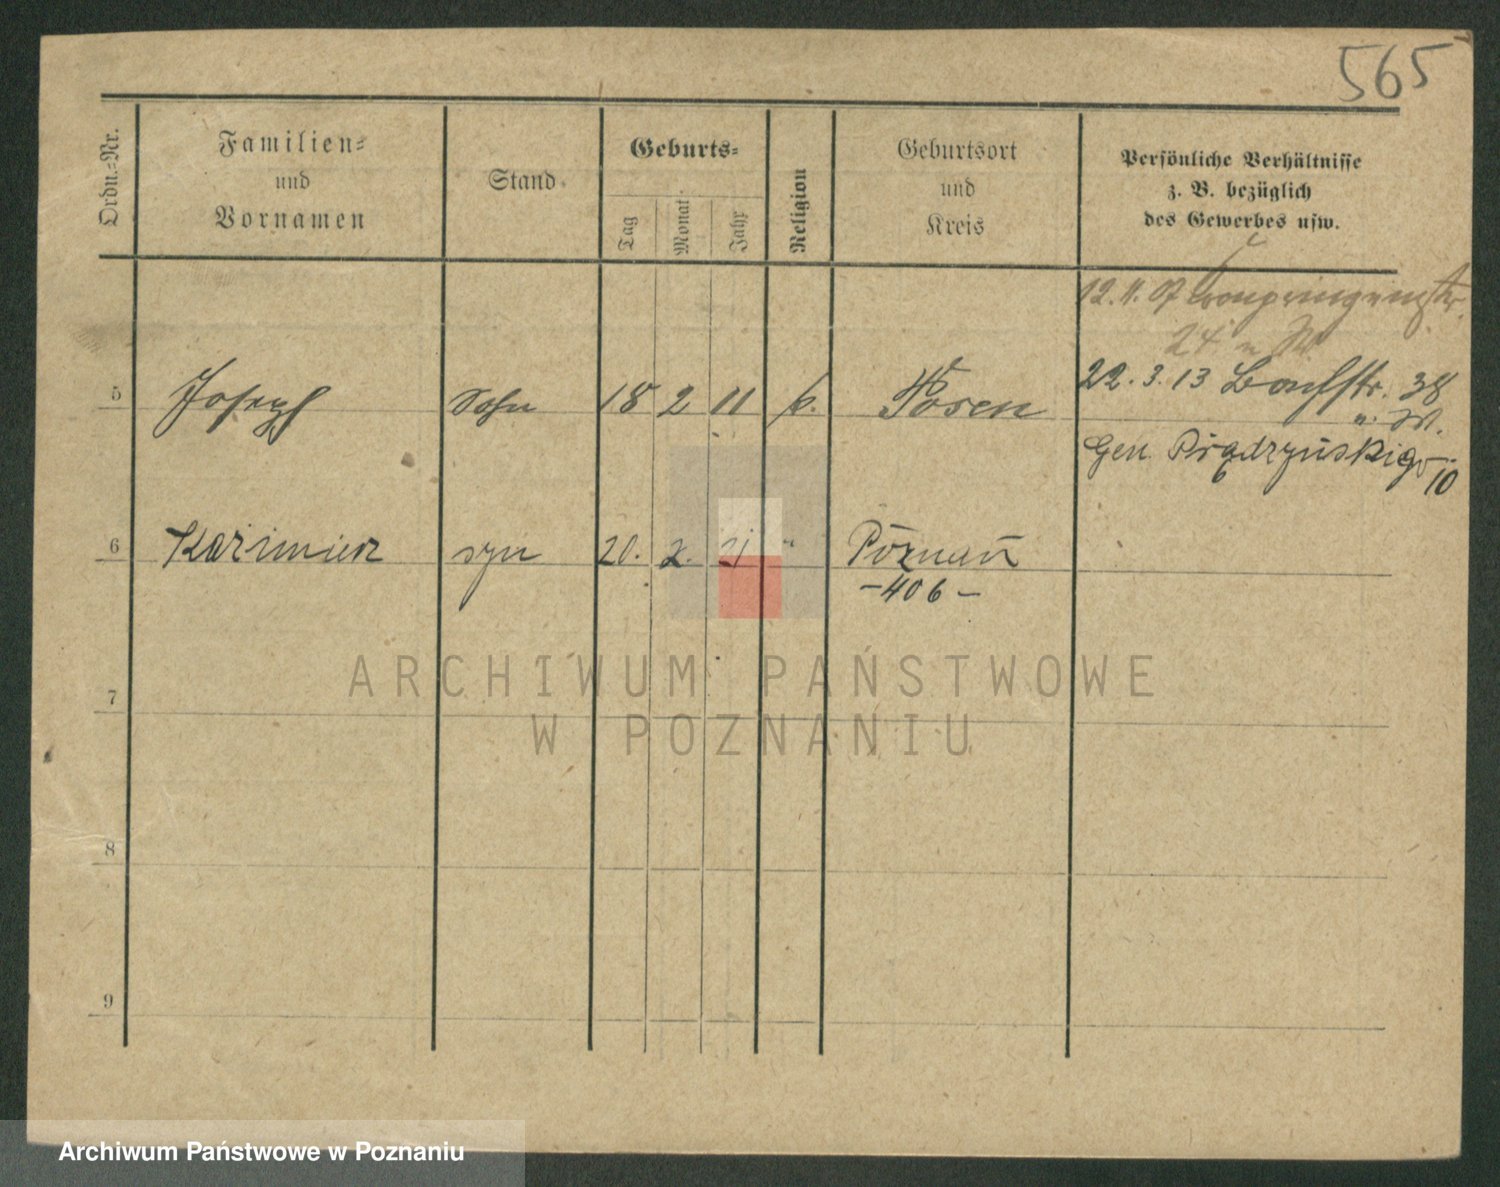 565
Ordn.-Nr.
Familien-
und
Vornamen
Stand
Geburts-
Tag
Monat
Jahr
Religion
Geburtsort
und
Kreis
Persönliche Verhältnisse
z. B. bezüglich
des Gewerbes usw.
12.11.07
24 n
5 Joseph Sohn 18 2 11 k. Posen
22.3.13 38
Gen. Prądzyńskiego
10
6 Kazimierz syn 20. 2. 21 " Poznań
-406-
7
8
9
ARCHIWUM PAŃSTWOWE
W POZNANIU
Archiwum Państwowe w Poznaniu